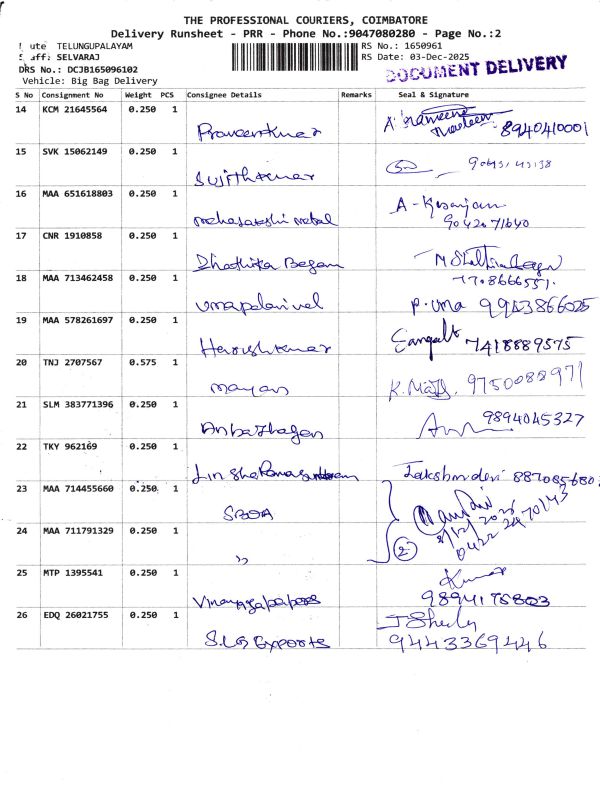 THE PROFESSIONAL COURIERS, COIMBATORE
Delivery Runsheet - PRR - Phone No.:9047080280 - Page No.:2
TELUNGUPALAYAM RS No.: 1650961
SELVARAJ RS Date: 03-Dec-2025
DRS No.: DCJB165096102 DOCUMENT DELIVERY
Vehicle: Big Bag Delivery
S No Consignment No Weight PCS Consignee Details Remarks Seal & Signature
14 KCM 21645564 0.250 1 Praveenkumar 8940410001
15 SVK 15062149 0.250 1 Sujithkumar
16 MAA 651618803 0.250 1 Mahasakthi metal A - Kesarjan
17 CNR 1910858 0.250 1 Dhathika Begam
7708666551.
18 MAA 713462458 0.250 1 Umapalanivel P. Uma 9943866025
19 MAA 578261697 0.250 1 Harishkumar 7418889575
20 TNJ 2707567 0.575 1 Mayan 9750088971
21 SLM 383771396 0.250 1 Anbazhagan 9894045327
22 TKY 962169 0.250 1
23 MAA 714455660 0.250 1
24 MAA 711791329 0.250 1 ,, 2
0422 2470143
25 MTP 1395541 0.250 1 Vinayagapapers Kumar
9894178803
26 EDQ 26021755 0.250 1 S.L.G Exports
9443369446